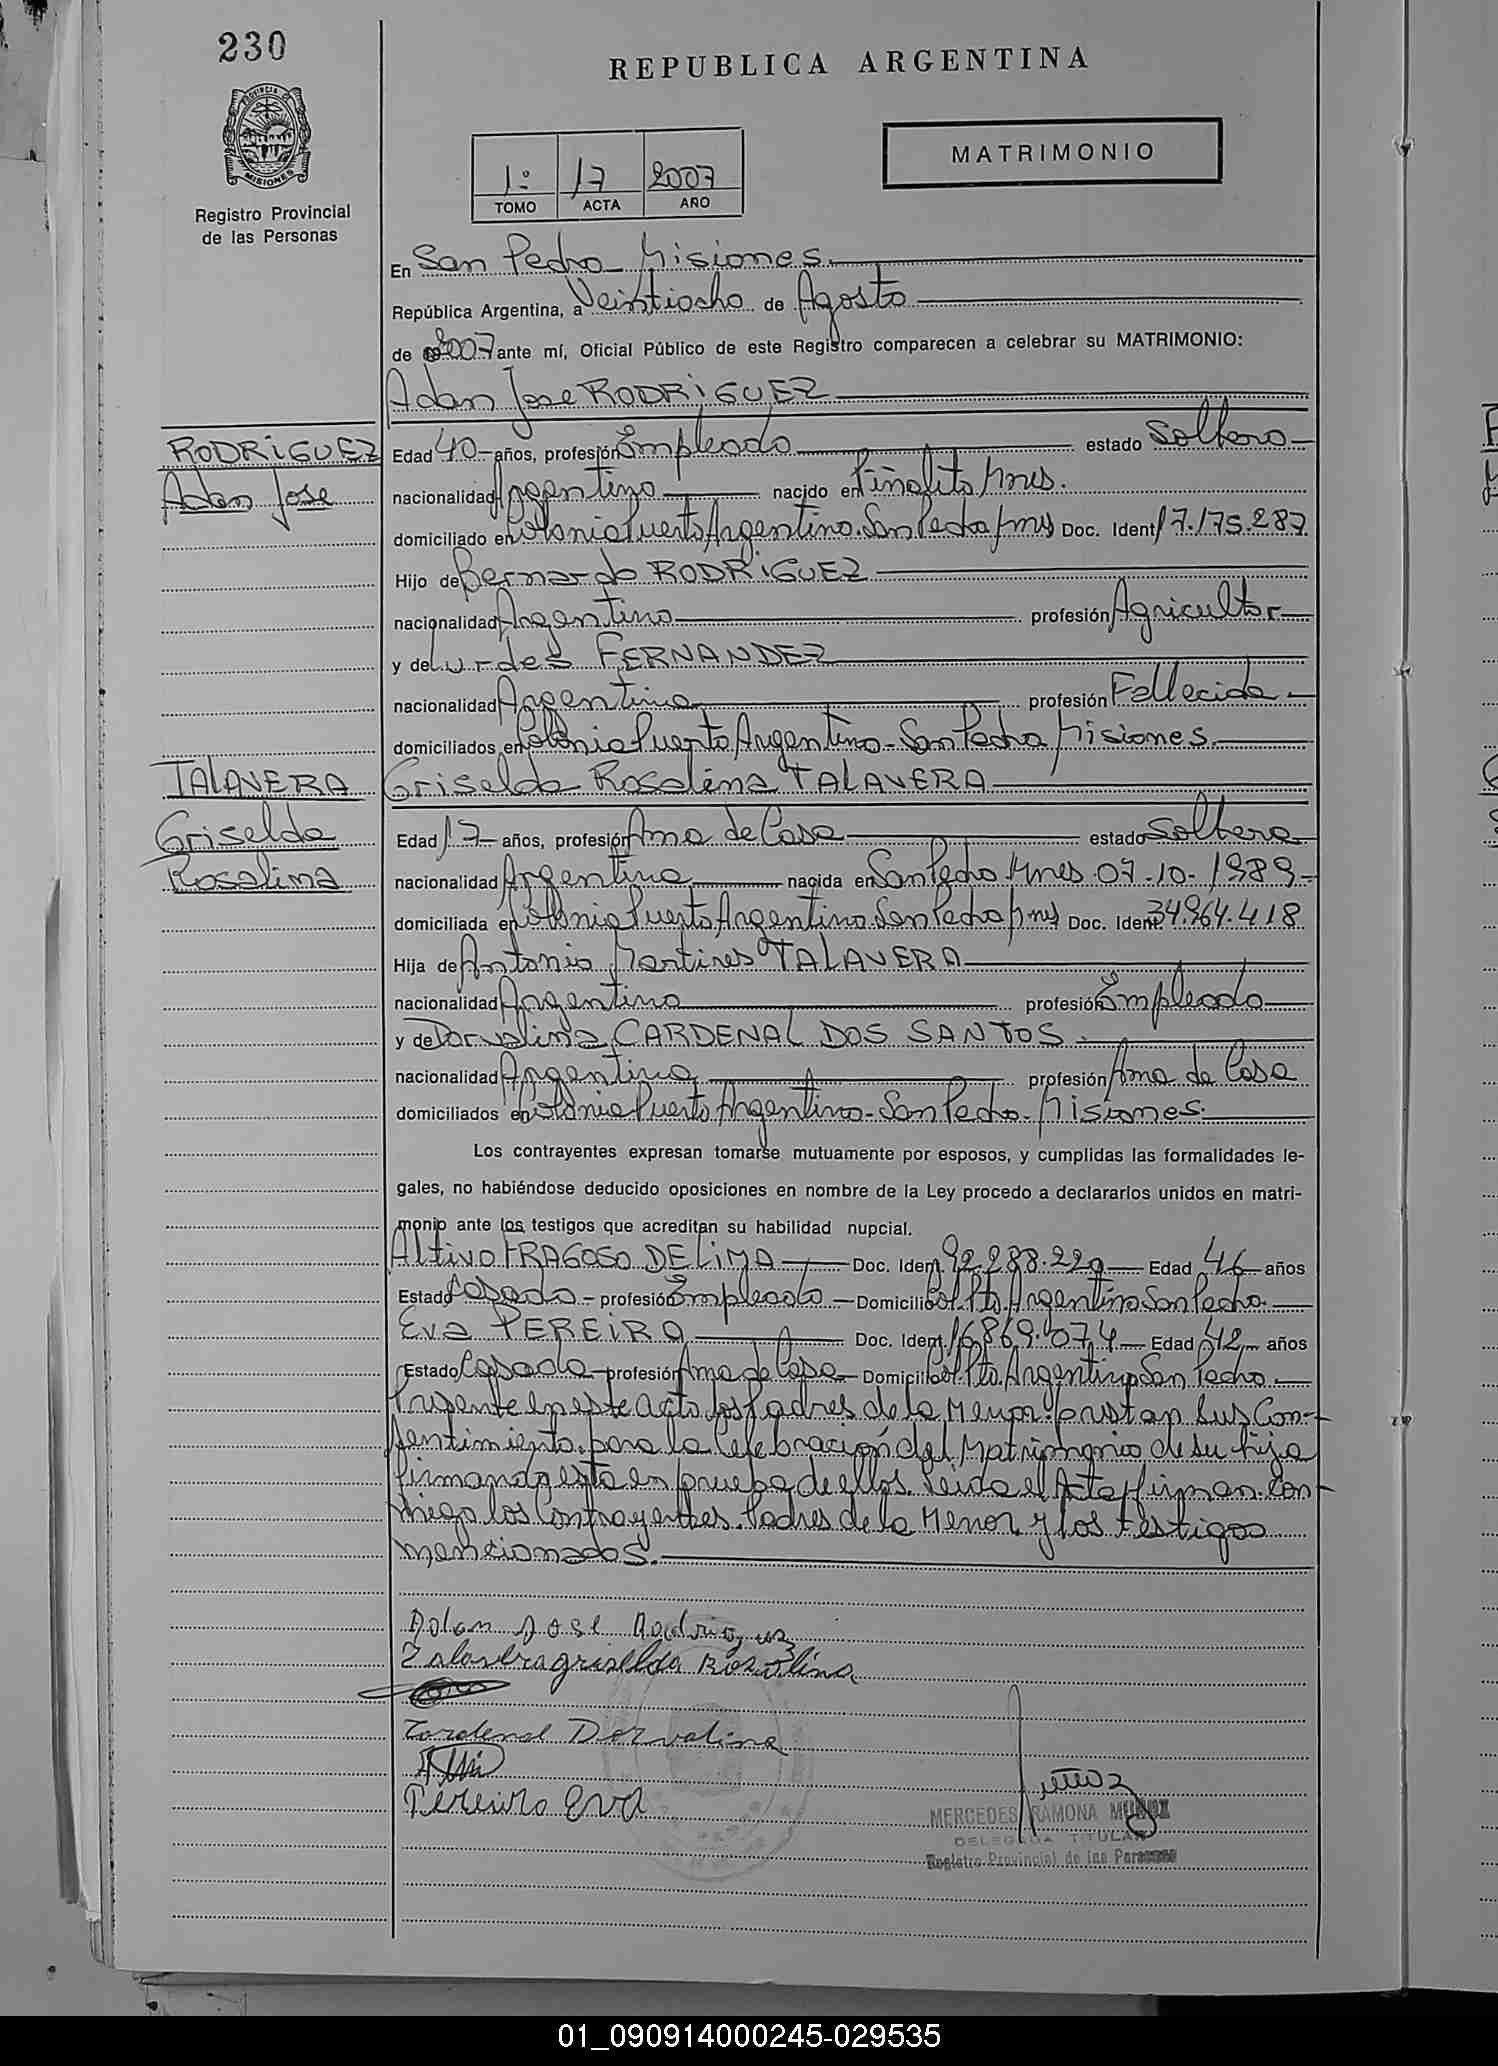 230
REPUBLICA ARGENTINA
PROVINCIA DE
MISIONES
Registro Provincial
de las Personas
1º 17 2007
TOMO ACTA AÑO
MATRIMONIO
En San Pedro Misiones.
República Argentina, a Veintiocho de Agosto
de 2007 ante mí, Oficial Público de este Registro comparecen a celebrar su MATRIMONIO:
Adan Jose RODRiGUEZ
RODRiGUEZ
Adan Jose
Edad 40 años, profesión Empleado estado Soltero
nacionalidad Argentino nacido en Piñalito Mnes.
domiciliado en Colonia Puerto Argentino. San Pedro Mnes Doc. Ident 17.175.287
Hijo de Bernardo RODRiGUEZ
nacionalidad Argentino profesión Agricultor
y de Lurdes FERNANDEZ
nacionalidad Argentina profesión Fallecida
domiciliados en Colonia Puerto Argentino - San Pedro Misiones.
TALAVERA
Griselda
Rosalina
Griselda Rosalina TALAVERA
Edad 17 años, profesión Ama de Casa estado Soltera
nacionalidad Argentina nacida en San Pedro Mnes 07-10-1989
domiciliada en Colonia Puerto Argentino San Pedro Mnes Doc. Ident. 34.964.418
Hija de Antonio Martires TALAVERA
nacionalidad Argentino profesión Empleado
y de Dorvalina CARDENAL DOS SANTOS.
nacionalidad Argentina profesión Ama de Casa
domiciliados en Colonia Puerto Argentino - San Pedro - Misiones.
Los contrayentes expresan tomarse mutuamente por esposos, y cumplidas las formalidades le-
gales, no habiéndose deducido oposiciones en nombre de la Ley procedo a declararlos unidos en matri-
monio ante los testigos que acreditan su habilidad nupcial.
Altivo FRAGOSO DE LiMA Doc. Ident. 92.288.229 Edad 46 años
Estado Casado - profesión Empleado - Domicilio Col. Pto. Argentino San Pedro.
Eva PEREiRA Doc. Ident. 16.869.074 Edad 42 años
Estado Casada profesión Ama de Casa - Domicilio Col. Pto. Argentino San Pedro
Presente en este acto los padres de la Menor prestan sus Con-
sentimiento para la Celebración del Matrimonio de su hija
firmando esta en prueba de ellos. Leida el Acta firman Con-
migo los Contrayentes. Padres de la Menor y los testigos
mencionados.
Adan Jose Rodriguez
Talavera griselda Rosalina
Cardenal Dorvalina
Pereira Eva
MERCEDES RAMONA MUÑOZ
DELEGADA TITULAR
Registro Provincial de las Personas
01_090914000245-029535